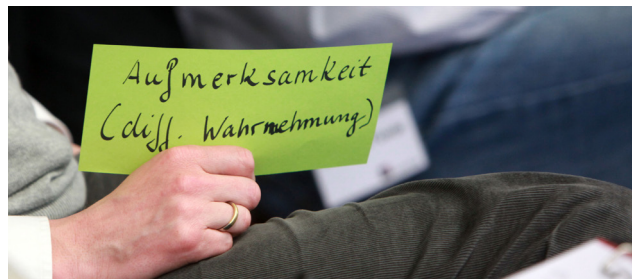 Aufmerksamkeit
(diff. Wahrnehmung)